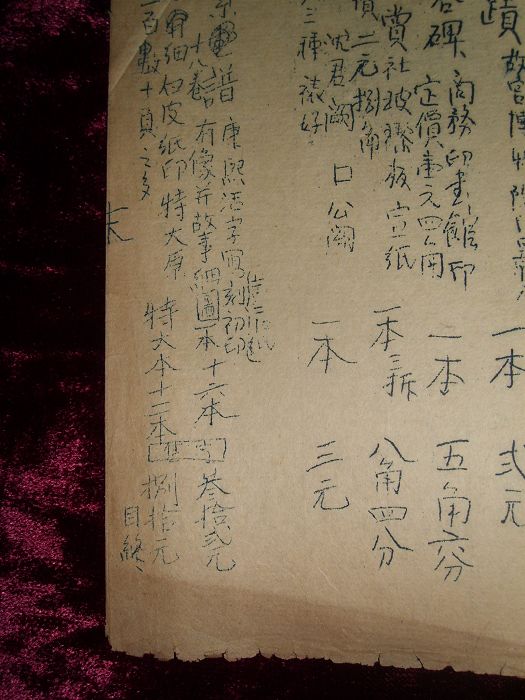 蹟 故宮博物院 一本 弍元
碑 商務印書館印
定價壹元四角 一本 五角六分
賞社玻璃版宣紙 一本 三折 八角四分
價二元捌角
沈君闕 口公闕 一本 三元
三種 裱好
畫譜 康熙活字寫刻初印
十八卷 有像并故事細圖 一本 十六本 叁拾弍元
細白皮紙印特大厚 特大本十二本 捌拾元
一百數十頁之多
末
目終